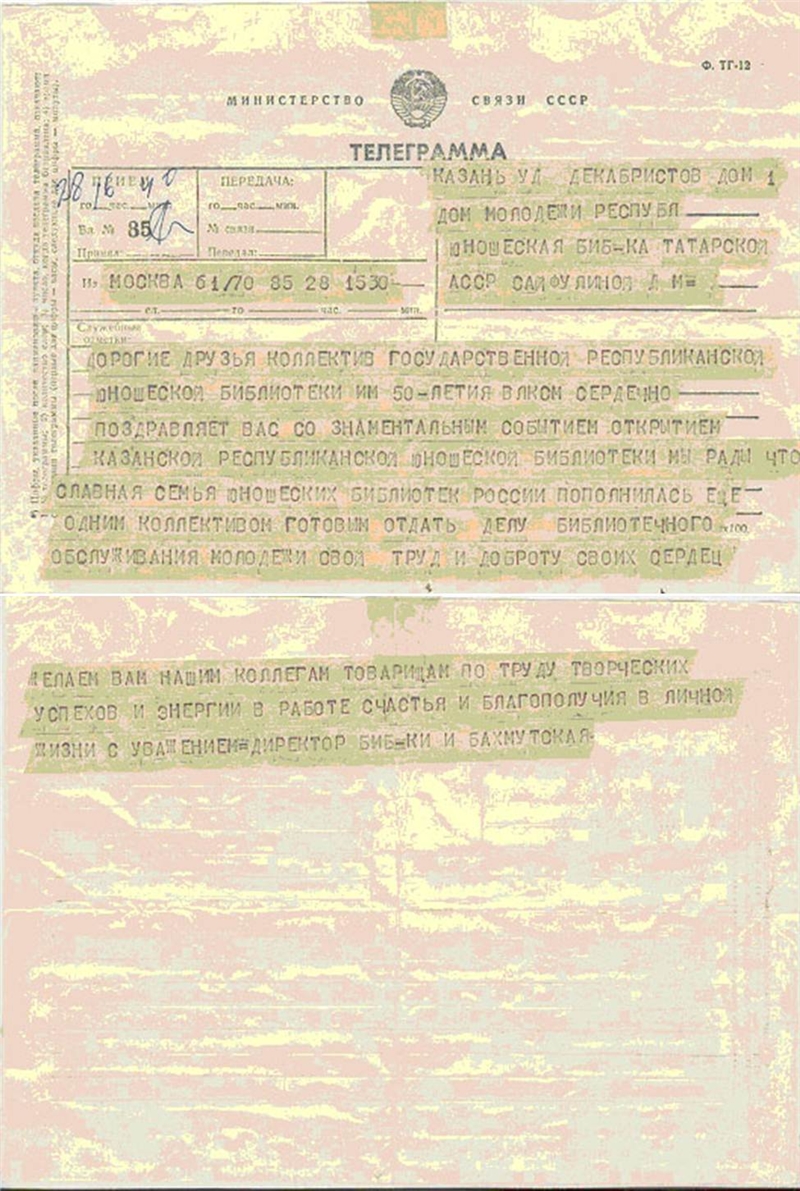 Ф. ТГ-12
МИНИСТЕРСТВО СВЯЗИ СССР
ТЕЛЕГРАММА
ПЕРЕДАЧА:
го час. мин.
№ связи
Передал:
Вл. № 85
Принял:
КАЗАНЬ УЛ ДЕКАБРИСТОВ ДОМ 1
ДОМ МОЛОДЕЖИ РЕСПУБЛ
ЮНОШЕСКАЯ БИБ-КА ТАТАРСКОЙ
АССР САЙФУЛИНОЙ Л М=
Из МОСКВА 61/70 85 28 1530
сл. го час. мин.
Служебные
отметки:
ДОРОГИЕ ДРУЗЬЯ КОЛЛЕКТИВ ГОСУДАРСТВЕННОЙ РЕСПУБЛИКАНСКОЙ
ЮНОШЕСКОЙ БИБЛИОТЕКИ ИМ 50-ЛЕТИЯ ВЛКСМ СЕРДЕЧНО
ПОЗДРАВЛЯЕТ ВАС СО ЗНАМЕНТАЛЬНЫМ СОБЫТИЕМ ОТКРЫТИЕМ
КАЗАНСКОЙ РЕСПУБЛИКАНСКОЙ ЮНОШЕСКОЙ БИБЛИОТЕКИ МЫ РАДЫ ЧТО
СЛАВНАЯ СЕМЬЯ ЮНОШЕСКИХ БИБЛИОТЕК РОССИИ ПОПОЛНИЛАСЬ ЕЩЕ
ОДНИМ КОЛЛЕКТИВОМ ГОТОВЫМ ОТДАТЬ ДЕЛУ БИБЛИОТЕЧНОГО
ОБСЛУЖИВАНИЯ МОЛОДЕЖИ СВОЙ ТРУД И ДОБРОТУ СВОИХ СЕРДЕЦ
ЖЕЛАЕМ ВАМ НАШИМ КОЛЛЕГАМ ТОВАРИЩАМ ПО ТРУДУ ТВОРЧЕСКИХ
УСПЕХОВ И ЭНЕРГИИ В РАБОТЕ СЧАСТЬЯ И БЛАГОПОЛУЧИЯ В ЛИЧНОЙ
ЖИЗНИ С УВАЖЕНИЕМ=ДИРЕКТОР БИБ=КИ И БАХМУТСКАЯ-